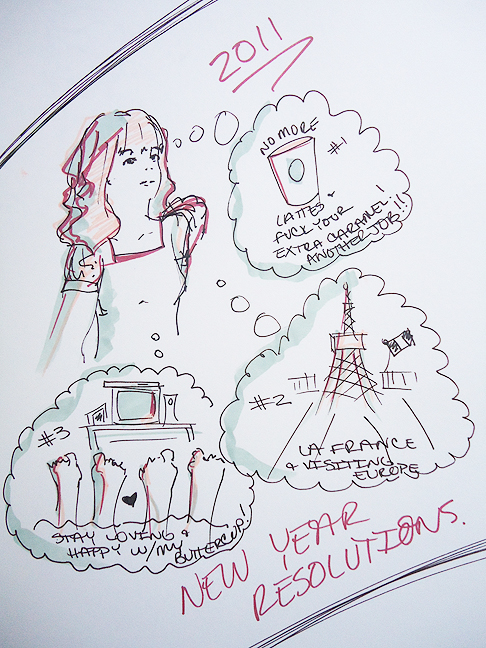 2011
NO MORE
#1
LATTES &
FUCK YOUR
EXTRA CARAMEL!
ANOTHER JOB!!
#2
LA FRANCE
& VISITING
EUROPE
#3
STAY LOVING &
HAPPY W/ MY BUTTERCUP!
NEW YEAR
RESOLUTIONS.